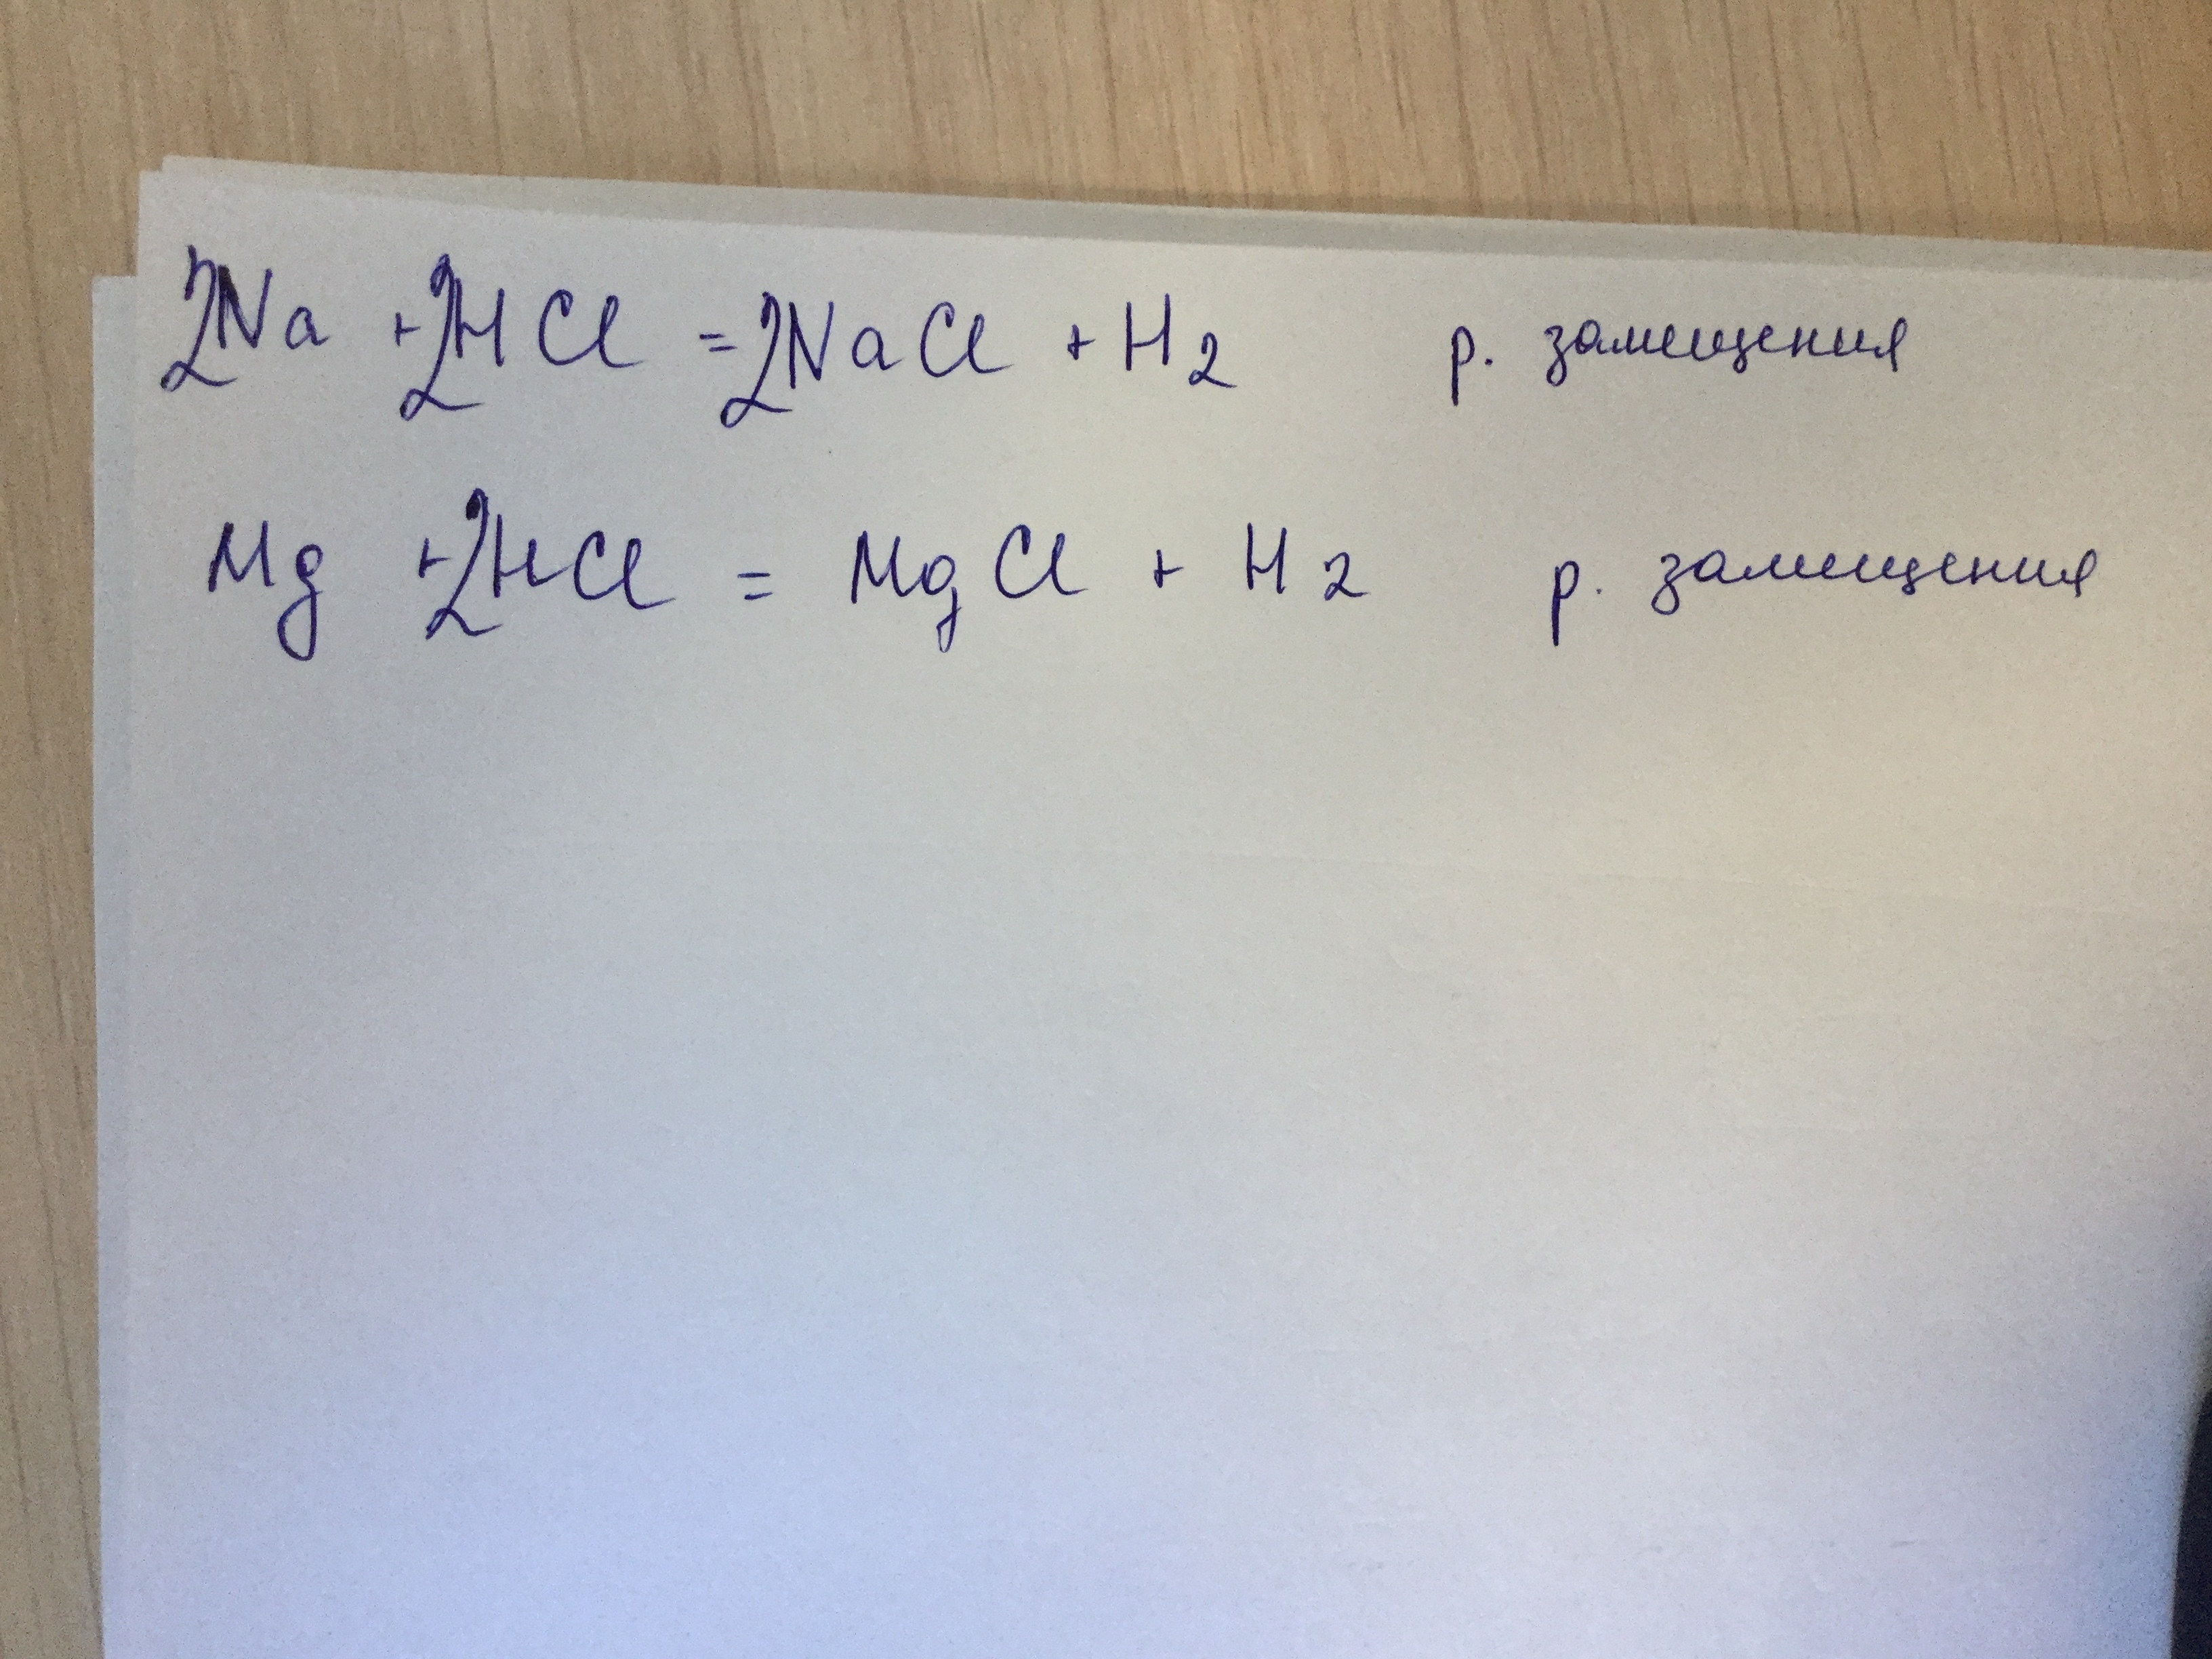 2Na + 2HCl = 2NaCl + H2 р. замещения
Mg + 2HCl = MgCl + H2 р. замещения